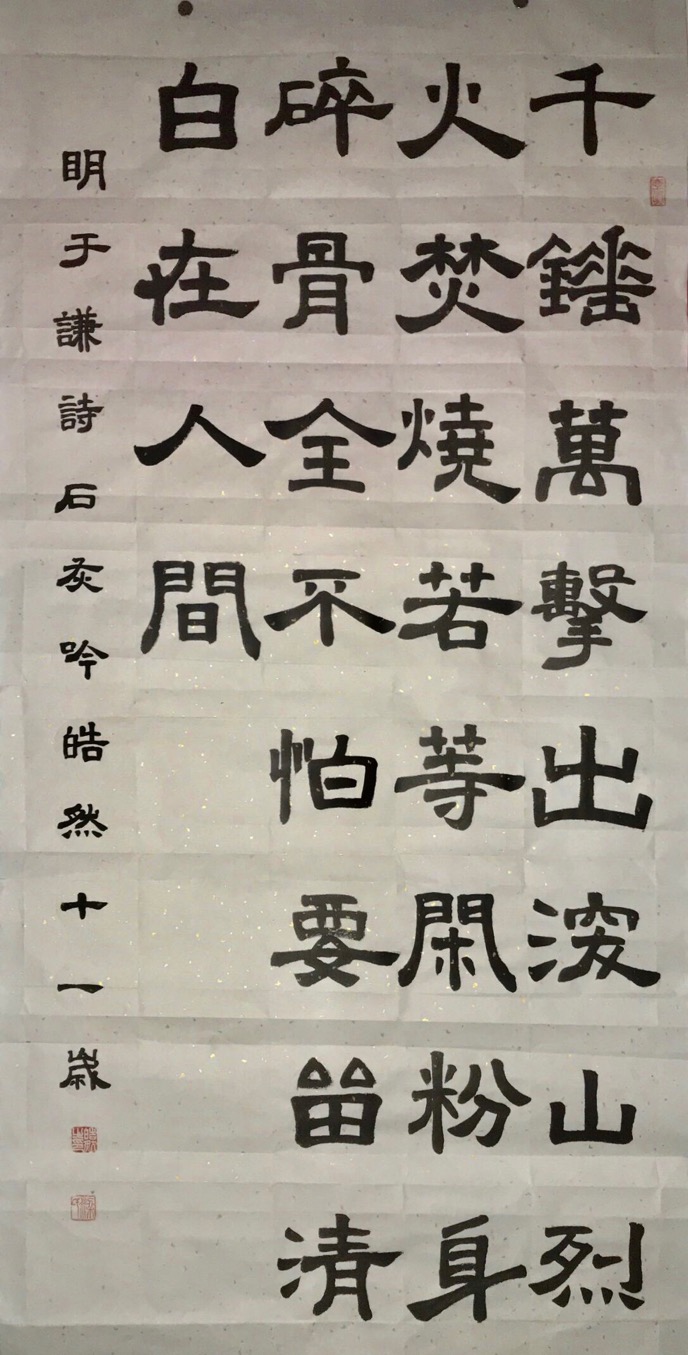 千錘萬擊出深山烈
火焚燒若等閑粉身
碎骨全不怕要留清
白在人間
明于謙詩石灰吟皓然十一歲